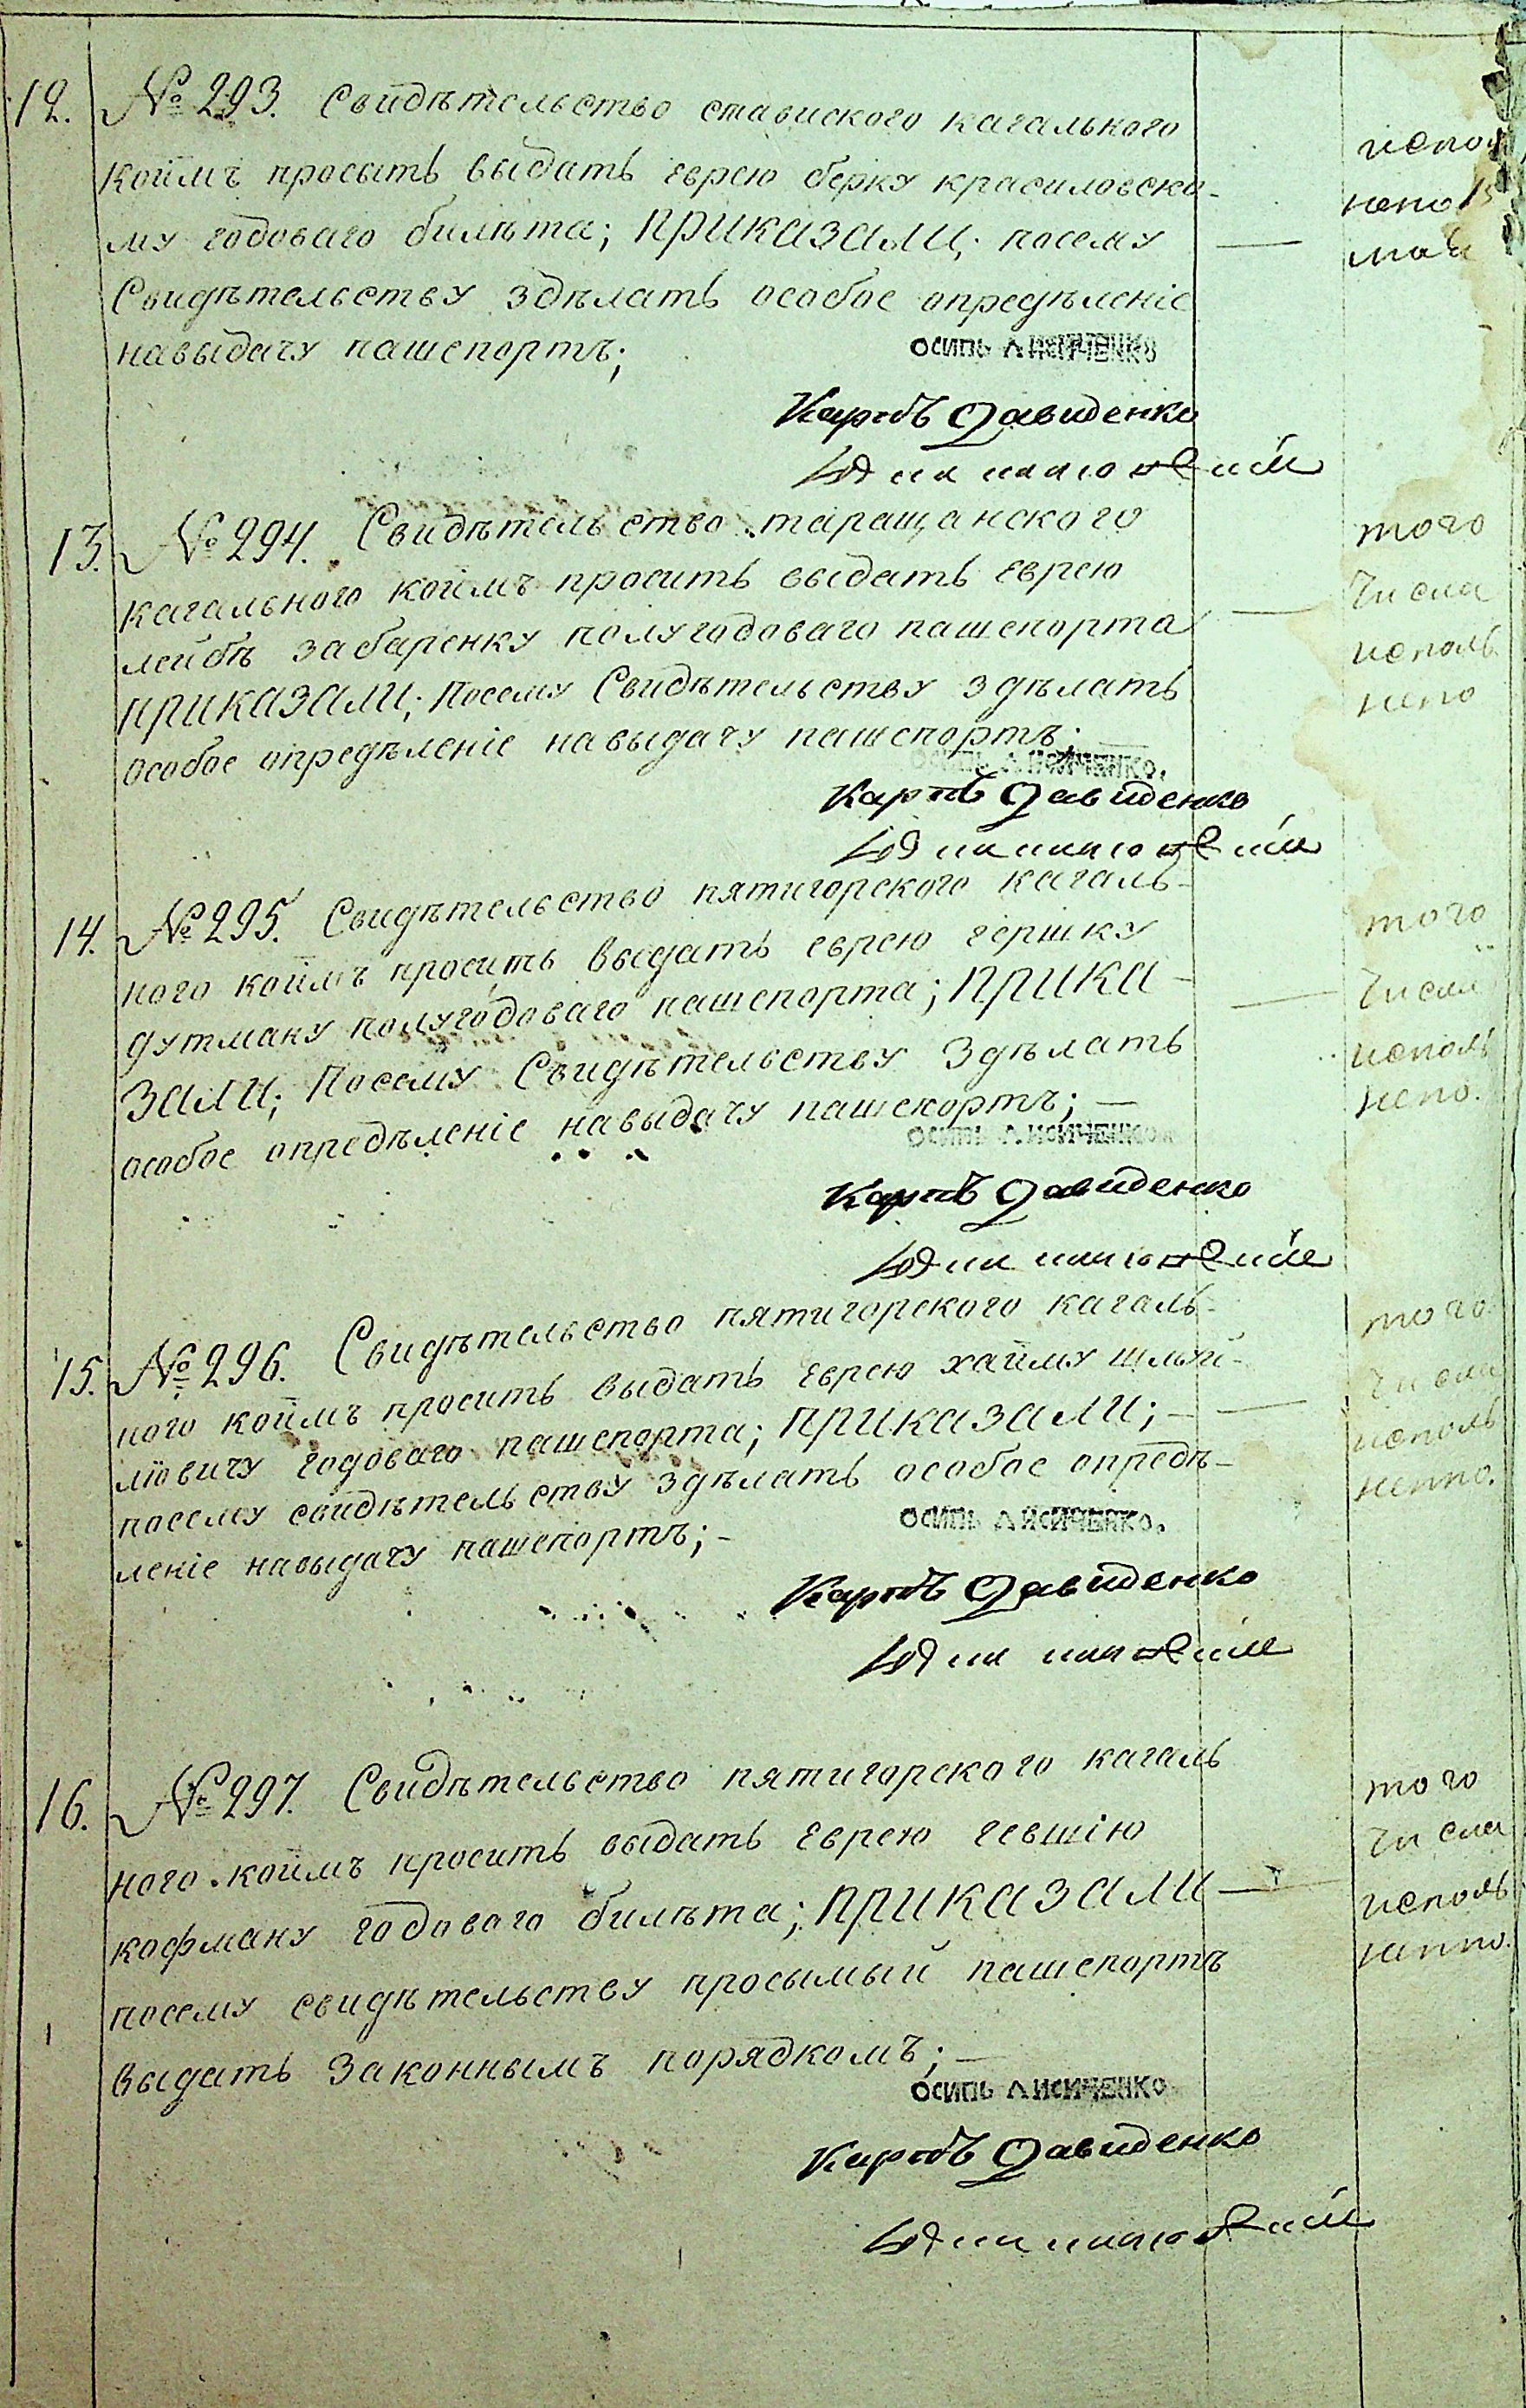 12. № 293. Свидѣтельство ставиского кагального
коимъ просытъ выдать еврею берку красиловско-
му годоваго билѣта; ПРИКАЗАЛИ; посему
Свидѣтельству здѣлать особое опредѣленіе
навыдачу пашепортъ;
исполь
нено 15
мая
ОСИПЬ ЛИСИЧЕНКО
Карпъ Давиденко
13. № 294. Свидѣтельство таращанского
кагального коимъ просить выдать еврею
лейбѣ забаренку полугодоваго пашепорта
ПРИКАЗАЛИ; Посему Свидѣтельству здѣлать
особое опредѣленіе навыдачу пашепортъ;
того
числа
исполь
нено
ОСИПЬ ЛИСИЧЕНКО.
Карпъ Давиденко
14. № 295. Свидѣтельство пятигорского кагаль-
ного коимъ просить выдать еврею гершку
дутману полугодоваго пашепорта; ПРИКА-
ЗАЛИ; Посему Свидѣтельству Здѣлать
особое опредѣленіе навыдачу пашепортъ; —
того
числа
исполь
нено.
ОСИПЬ ЛИСИЧЕНКО
Карпъ Давиденко
15. № 296. Свидѣтельство пятигорского кагаль-
ного коимъ просить выдать Еврею хаиму шлюй-
мовичу годоваго пашепорта; ПРИКАЗАЛИ; —
посему свидѣтельству здѣлать особое опредѣ-
леніе навыдачу пашепортъ; -
того
числа
исполь
ненно.
ОСИПЬ ЛИСИЧЕНКО.
Карпъ Давиденко
16. № 297. Свидѣтельство пятигорского кагаль
ного коимъ просить выдать Еврею гевшію
кофману годоваго билѣта; ПРИКАЗАЛИ —
посему свидѣтельству просымый пашепортъ
выдать Законнымъ порядкомъ; —
того
числа
исполь
ненно.
ОСИПЬ ЛИСИЧЕНКО
Карпъ Давиденко